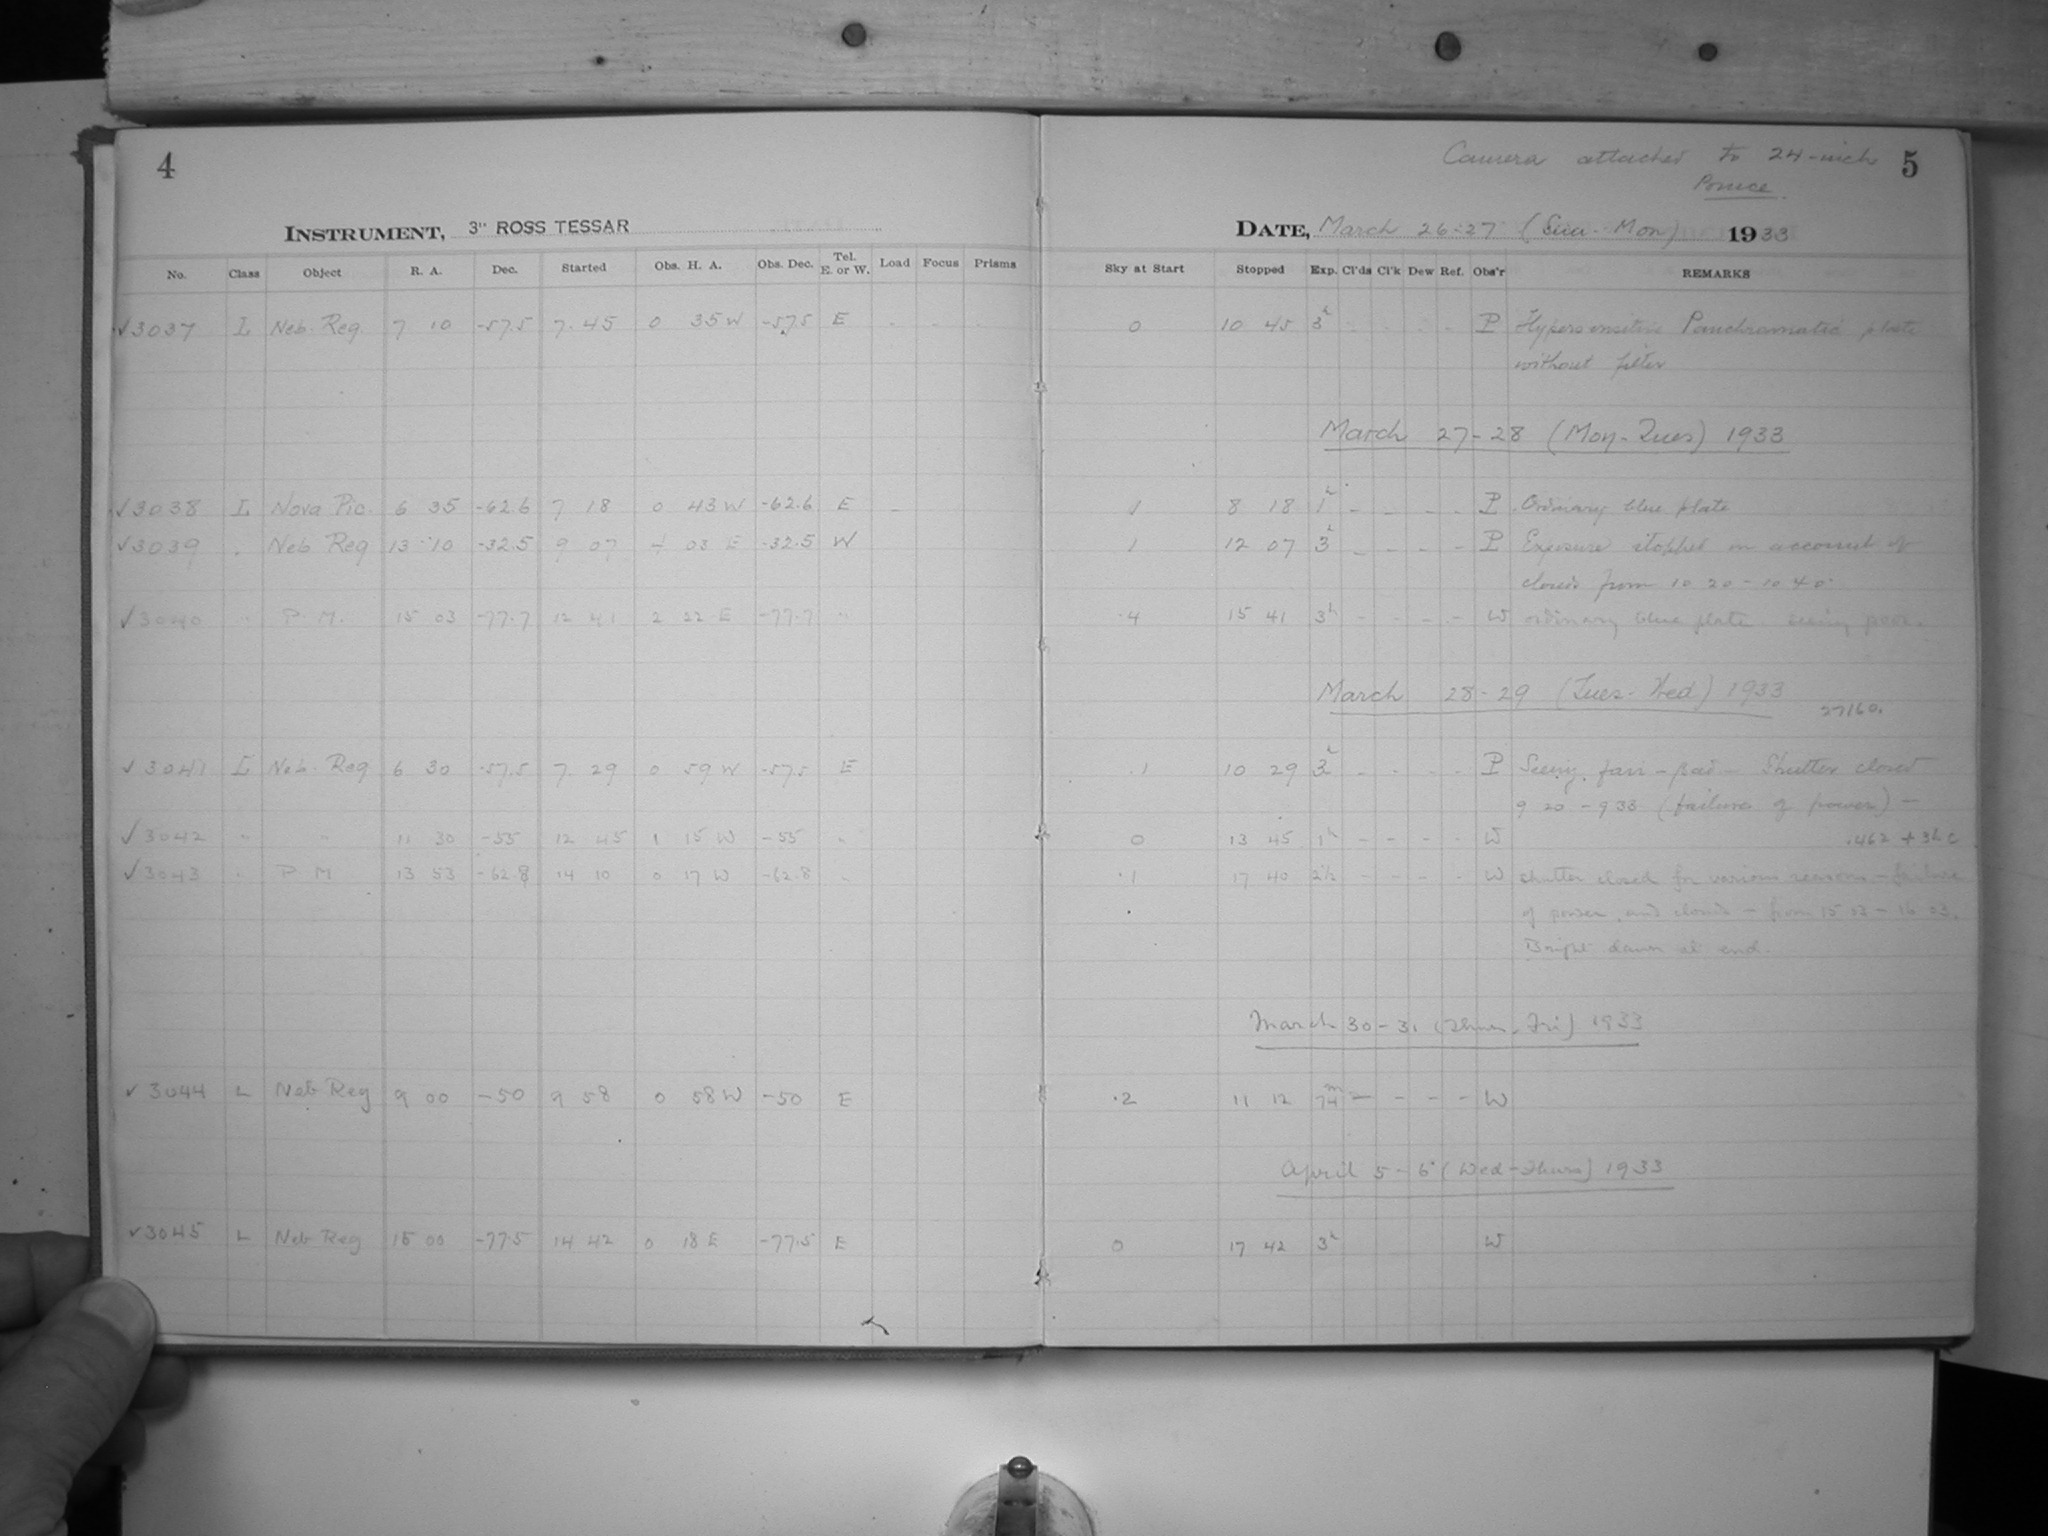 4
INSTRUMENT, 3" ROSS TESSAR
No. Class Object R. A. Dec. Started Obs. H. A. Obs. Dec. Tel. E. or W. Load Focus Prisms
✓3037 L Neb. Reg. 7 10 -57.5 7.45 0 35 W -57.5 E - - -
✓3038 L Nova Pic. 6 35 -62.6 7 18 0 43 W -62.6 E -
✓3039 " Neb Reg 13 10 -32.5 9 07 4 03 E -32.5 W
✓3040 " P. M. 15 03 -77.7 12 41 2 22 E -77.7 "
✓3041 L Neb. Reg 6 30 -57.5 7. 29 0 59 W -57.5 E
✓3042 " " 11 30 -55 12 45 1 15 W -55 "
✓3043 " P M 13 53 -62.8 14 10 0 17 W -62.8 "
✓3044 L Neb Reg 9 00 -50 9 58 0 58 W -50 E
✓3045 L Neb Reg 15 00 -77.5 14 42 0 18 E -77.5 E
Camera attached to 24-inch 5
DATE, March 26-27 (Sun-Mon) 1933
Sky at Start Stopped Exp. Cl'ds Cl'k Dew Ref. Obs'r REMARKS
0 10 45 3h - - - - P Hypersensitive Panchromatic plate
without filter
March 27-28 (Mon-Tues) 1933
1 8 18 1h - - - - P Ordinary blue plate
1 12 07 3h - - - - P Exposure stopped on account of
clouds from 10 20 - 10 40.
.4 15 41 3h - - - - W ordinary blue plate. seeing poor.
March 28-29 (Tues-Wed) 1933
27160.
.1 10 29 3h - - - - P Seeing fair - bad - Shutter closed
9 20 - 9 33 (failure of power) -
0 13 45 1h - - - - W
.1 17 40 2½ - - - - W shutter closed for various reasons - failure
of power, and clouds - from 15 03 - 16 03.
Bright dawn at end.
March 30-31 (Thur-Fri) 1933
.2 11 12 74m - - - - W
April 5-6 (Wed-Thurs) 1933
0 17 42 3h W